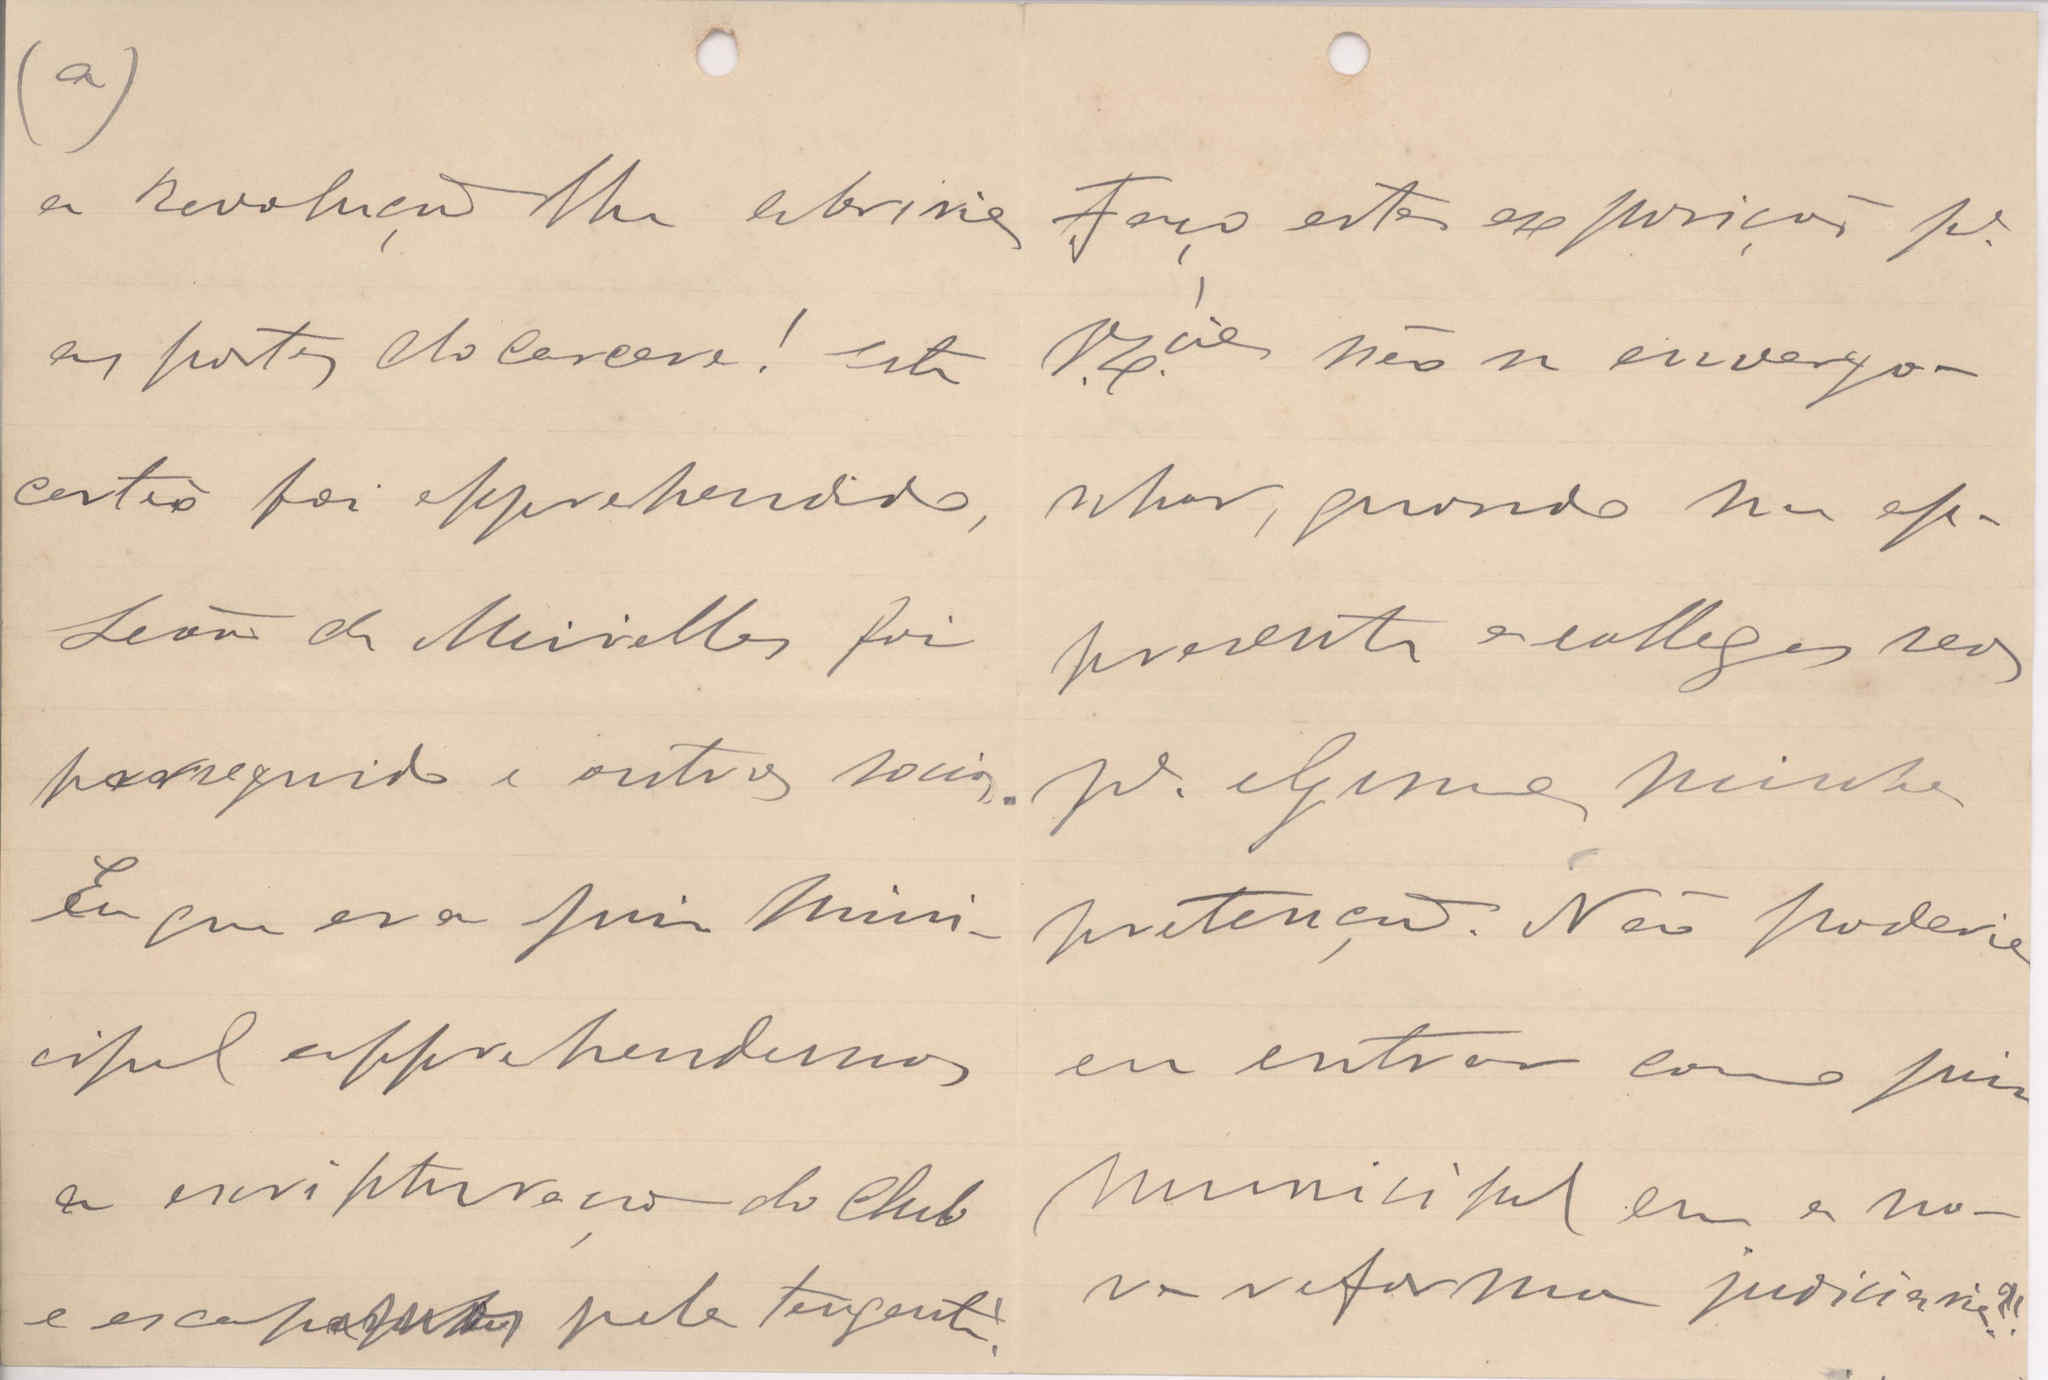 (a)
a Revolução lhe abriria
as portas do carcere! Esta
certão foi apprehendida,
Leão de Meirelles foi
perseguido e outros socios.
Eu que era juiz muni-
cipal apprehendemos
a escripturação do Club
e escapamos pela tangente.
Faço esta exposição pª.
V. Ex.cia não se envergo-
nhar, quando me ap-
presenta a collegas seos
pª. alguma minha
pretenção. Não poderia
eu entrar como juiz
municipal em a no-
va reforma judiciaria?!